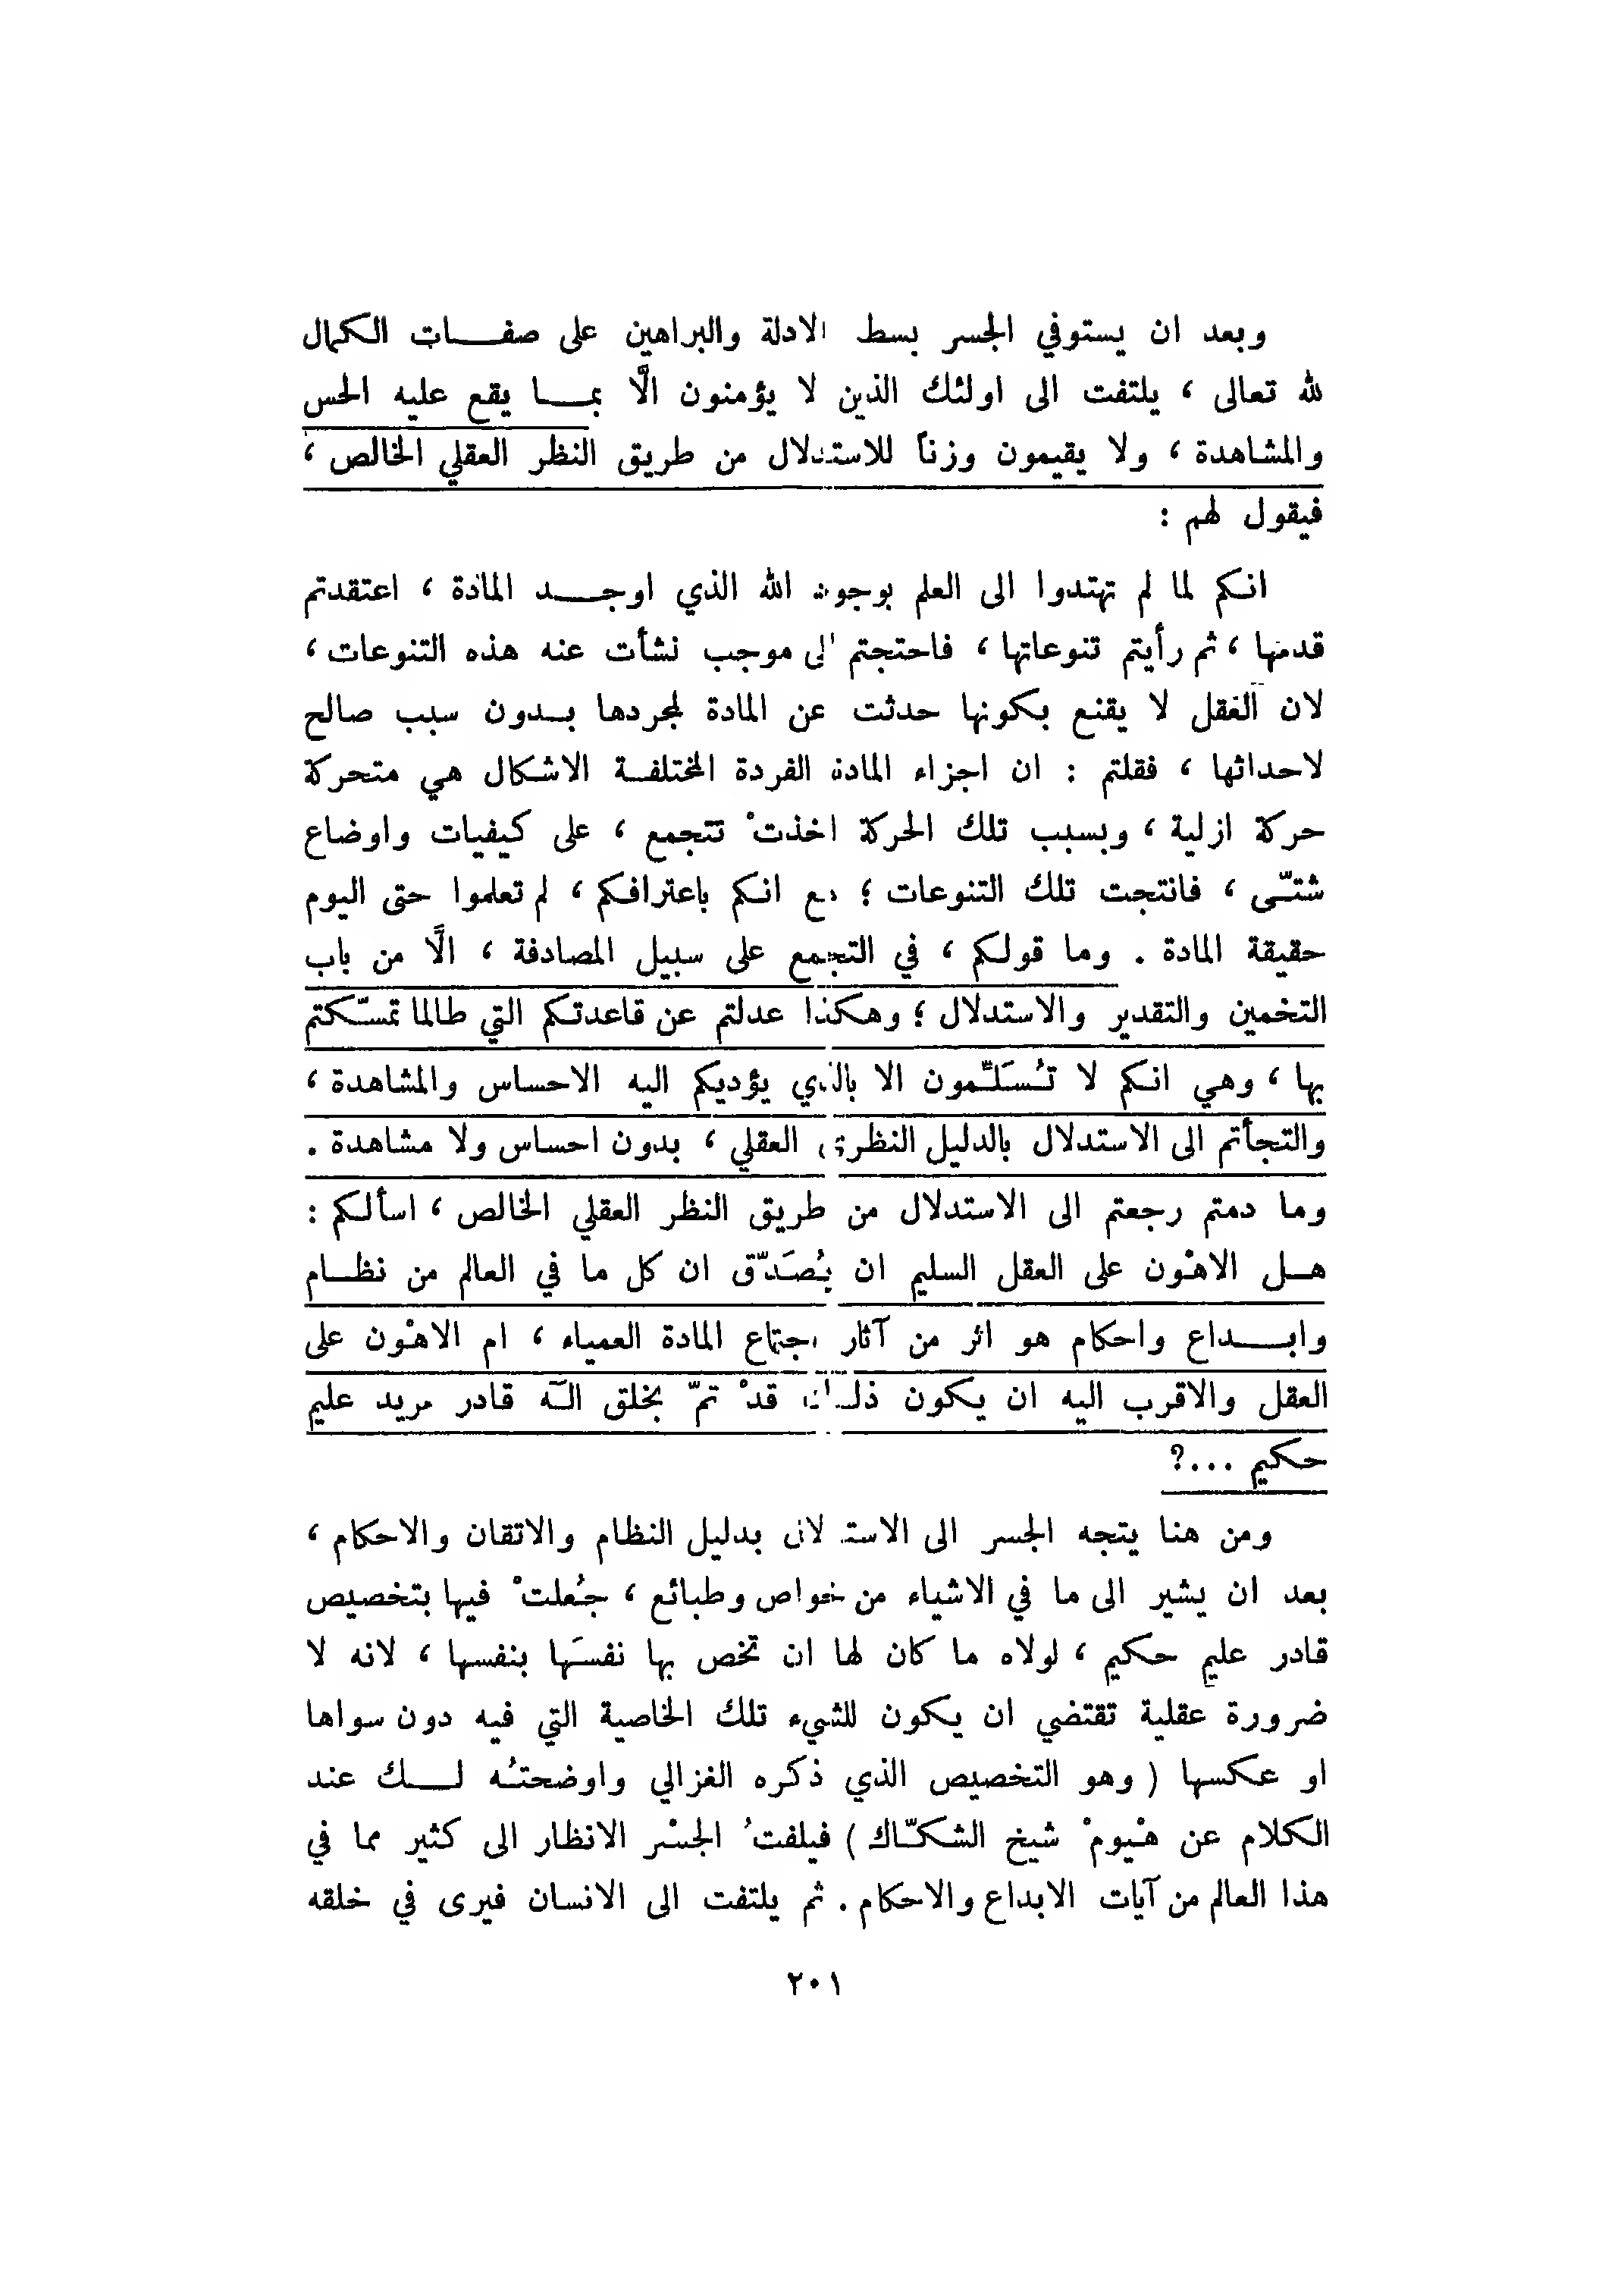 وبعد ان يستوفي الجسر بسط الادلة والبراهين على صفـــات الكمال
لله تعالى ، يلتفت الى اولئك الذين لا يؤمنون الَّا بمـــا يقع عليه الحس
والمشاهدة ، ولا يقيمون وزناً للاستدلال من طريق النظر العقلي الخالص ،
فيقول لهم :
انكم لما لم تهتدوا الى العلم بوجود الله الذي اوجـــد المادة ، اعتقدتم
قدمها ، ثم رأيتم تنوعاتها ، فاحتجتم الى موجب نشأت عنه هذه التنوعات ،
لان العقل لا يقنع بكونها حدثت عن المادة لمجردها بـدون سبب صالح
لاحداثها ، فقلتم : ان اجزاء المادة الفردة المختلفـة الاشكال هي متحركة
حركة ازلية ، وبسبب تلك الحركة اخذتْ تتجمع ، على كيفيات واوضاع
شتّى ، فانتجت تلك التنوعات ؛ مع انكم باعترافكم ، لم تعلموا حتى اليوم
حقيقة المادة . وما قولكم ، في التجمع على سبيل المصادفة ، الَّا من باب
التخمين والتقدير والاستدلال ؛ وهكذا عدلتم عن قاعدتكم التي طالما تمسّكتم
بها ، وهي انكم لا تُسَلّمون الا بالذي يؤديكم اليه الاحساس والمشاهدة ،
والتجأتم الى الاستدلال بالدليل النظري العقلي ، بدون احساس ولا مشاهدة .
وما دمتم رجعتم الى الاستدلال من طريق النظر العقلي الخالص ، اسألكم :
هـل الاهْون على العقل السليم ان يُصَدّق ان كل ما في العالم من نظـام
وابـــداع واحكام هو اثر من آثار اجتماع المادة العمياء ، ام الاهْون على
العقل والاقرب اليه ان يكون ذلك قدْ تمّ بخلق الـه قادر مريد عليم
حكيم ...؟
ومن هنا يتجه الجسر الى الاستدلال بدليل النظام والاتقان والاحكام ،
بعد ان يشير الى ما في الاشياء من خواص وطبائع ، جُعلتْ فيها بتخصيص
قادر عليم حكيم ، لولاه ما كان لها ان تخص بها نفسَها بنفسها ، لانه لا
ضرورة عقلية تقتضي ان يكون للشيء تلك الخاصية التي فيه دون سواها
او عكسها ( وهو التخصيص الذي ذكره الغزالي واوضحتُه لـــك عند
الكلام عن هْيومْ شيخ الشكّاك ) فيلفتُ الجسْر الانظار الى كثير مما في
هذا العالم من آيات الابداع والاحكام . ثم يلتفت الى الانسان فيرى في خلقه
٢٠١